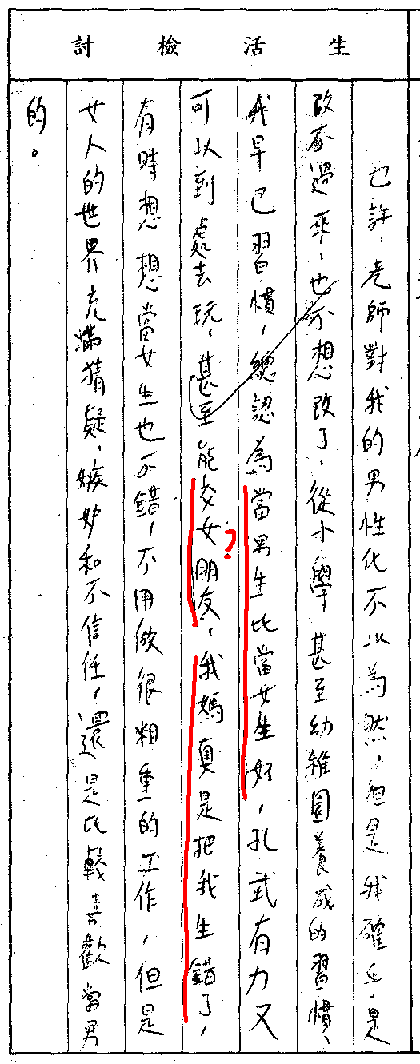 生活檢討
也許,老師對我的男性化不以為然,但是我確乎是
改不過來,也不想改了,從小學甚至幼稚園養成的習慣、
我早已習慣,總認為當男生比當女生好,孔武有力又
可以到處去玩,甚至能交女朋友,我媽真是把我生錯了,
?
有時想想當女生也不錯,不用做很粗重的工作,但是
女人的世界充滿猜疑,嫉妒和不信任,還是比較喜歡當男
的。